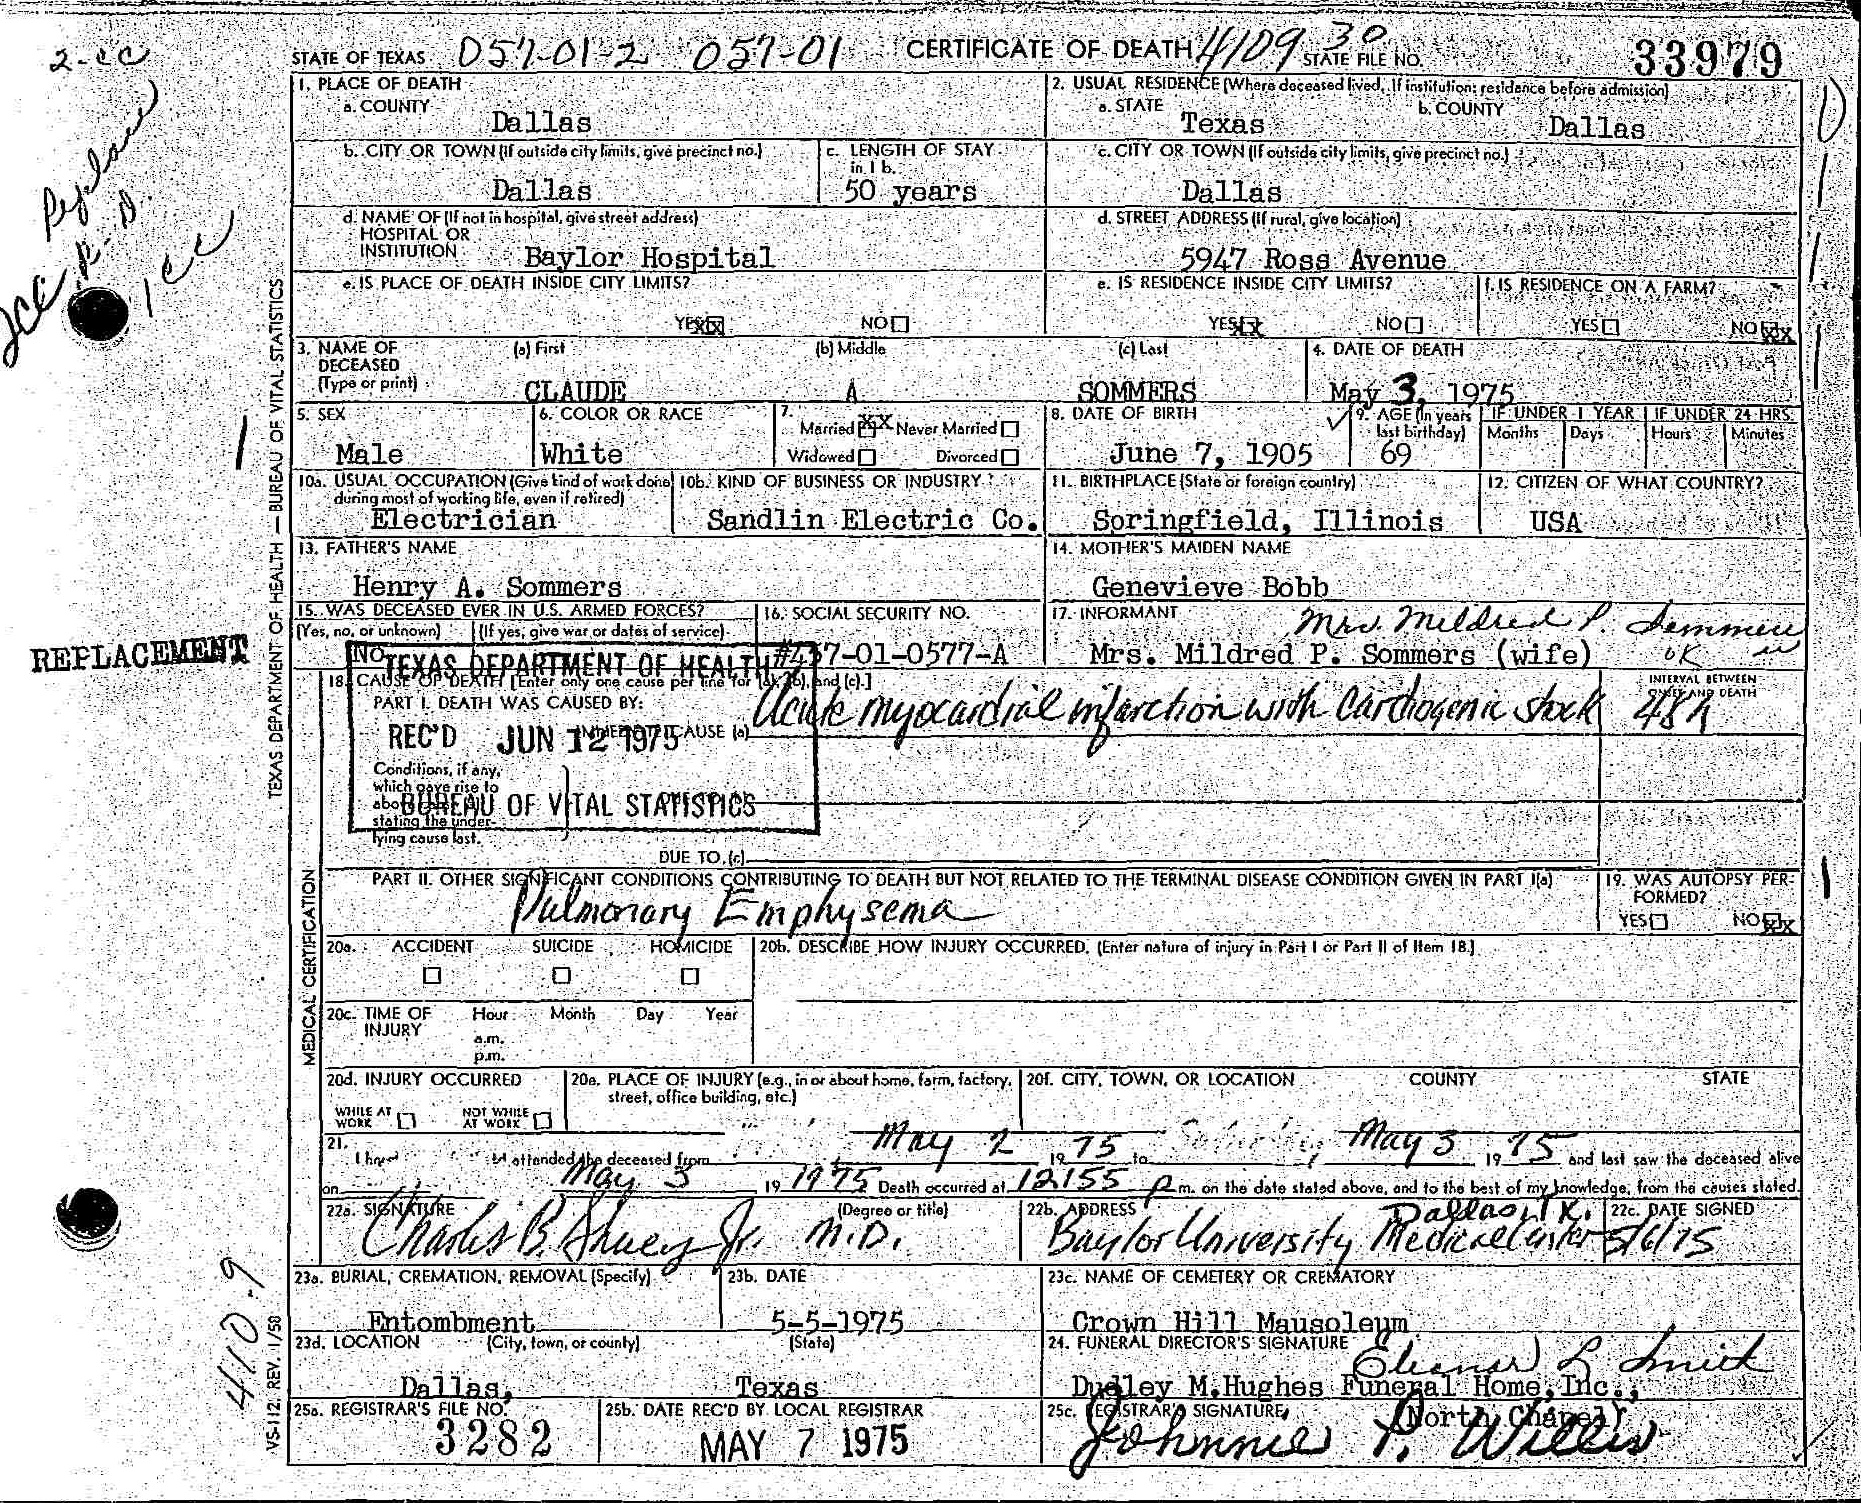 2-CC
STATE OF TEXAS 057-01-2 057-01 CERTIFICATE OF DEATH 4109 30 STATE FILE NO. 33979
1. PLACE OF DEATH
a. COUNTY
Dallas
2. USUAL RESIDENCE (Where deceased lived. If institution: residence before admission)
a. STATE b. COUNTY
Texas Dallas
b. CITY OR TOWN (If outside city limits, give precinct no.)
Dallas
c. LENGTH OF STAY in 1 b.
50 years
c. CITY OR TOWN (If outside city limits, give precinct no.)
Dallas
d. NAME OF (If not in hospital, give street address)
HOSPITAL OR
INSTITUTION Baylor Hospital
d. STREET ADDRESS (If rural, give location)
5947 Ross Avenue
e. IS PLACE OF DEATH INSIDE CITY LIMITS?
YES XX NO
e. IS RESIDENCE INSIDE CITY LIMITS?
YES XX NO
f. IS RESIDENCE ON A FARM?
YES NO XX
1 CC
3. NAME OF (a) First (b) Middle (c) Last
DECEASED
(Type or print)
CLAUDE A SOMMERS
4. DATE OF DEATH
May 3, 1975
5. SEX
Male
6. COLOR OR RACE
White
7.
Married XX Never Married
Widowed Divorced
8. DATE OF BIRTH
June 7, 1905
9. AGE (In years last birthday)
69
IF UNDER 1 YEAR IF UNDER 24 HRS.
Months Days Hours Minutes
10a. USUAL OCCUPATION (Give kind of work done
during most of working life, even if retired)
Electrician
10b. KIND OF BUSINESS OR INDUSTRY
Sandlin Electric Co.
11. BIRTHPLACE (State or foreign country)
Springfield, Illinois
12. CITIZEN OF WHAT COUNTRY?
USA
13. FATHER'S NAME
Henry A. Sommers
14. MOTHER'S MAIDEN NAME
Genevieve Bobb
15. WAS DECEASED EVER IN U.S. ARMED FORCES?
(Yes, no, or unknown) (If yes, give war or dates of service)
NO
16. SOCIAL SECURITY NO.
#457-01-0577-A
17. INFORMANT Mrs. Mildred P. Sommers
Mrs. Mildred P. Sommers (wife) OK
REPLACEMENT
TEXAS DEPARTMENT OF HEALTH
REC'D JUN 12 1975
BUREAU OF VITAL STATISTICS
18. CAUSE OF DEATH [Enter only one cause per line for (a), (b), and (c).]
PART I. DEATH WAS CAUSED BY:
CAUSE (a) Acute myocardial infarction with Cardiogenic shock
INTERVAL BETWEEN
ONSET AND DEATH
48h
Conditions, if any,
which gave rise to
stating the under-
lying cause last.
DUE TO (c)
PART II. OTHER SIGNIFICANT CONDITIONS CONTRIBUTING TO DEATH BUT NOT RELATED TO THE TERMINAL DISEASE CONDITION GIVEN IN PART I(a)
Pulmonary Emphysema
19. WAS AUTOPSY PER-
FORMED?
YES NO XX
20a. ACCIDENT SUICIDE HOMICIDE
20b. DESCRIBE HOW INJURY OCCURRED. (Enter nature of injury in Part I or Part II of Item 18.)
20c. TIME OF INJURY Hour Month Day Year
a.m.
p.m.
20d. INJURY OCCURRED
WHILE AT WORK NOT WHILE AT WORK
20e. PLACE OF INJURY (e.g., in or about home, farm, factory,
street, office building, etc.)
20f. CITY, TOWN, OR LOCATION COUNTY STATE
21.
attended the deceased from May 2 19 75 to May 3 19 75 and last saw the deceased alive
on May 3 19 1975 Death occurred at 12:55 p m. on the date stated above, and to the best of my knowledge, from the causes stated.
22a. SIGNATURE (Degree or title)
Charles B. Shuey Jr. M.D.
22b. ADDRESS Dallas, TX.
Baylor University Medical Center
22c. DATE SIGNED
5/6/75
23a. BURIAL, CREMATION, REMOVAL (Specify)
Entombment
23b. DATE
5-5-1975
23c. NAME OF CEMETERY OR CREMATORY
Crown Hill Mausoleum
23d. LOCATION (City, town, or county) (State)
Dallas, Texas
24. FUNERAL DIRECTOR'S SIGNATURE Eleanor L Smith
Dudley M. Hughes Funeral Home, Inc.,
(North Chapel)
25a. REGISTRAR'S FILE NO.
3282
25b. DATE REC'D BY LOCAL REGISTRAR
MAY 7 1975
25c. REGISTRAR'S SIGNATURE
Johnnie P. Willis
TEXAS DEPARTMENT OF HEALTH — BUREAU OF VITAL STATISTICS
MEDICAL CERTIFICATION
410.9
VS-112, REV. 1/58